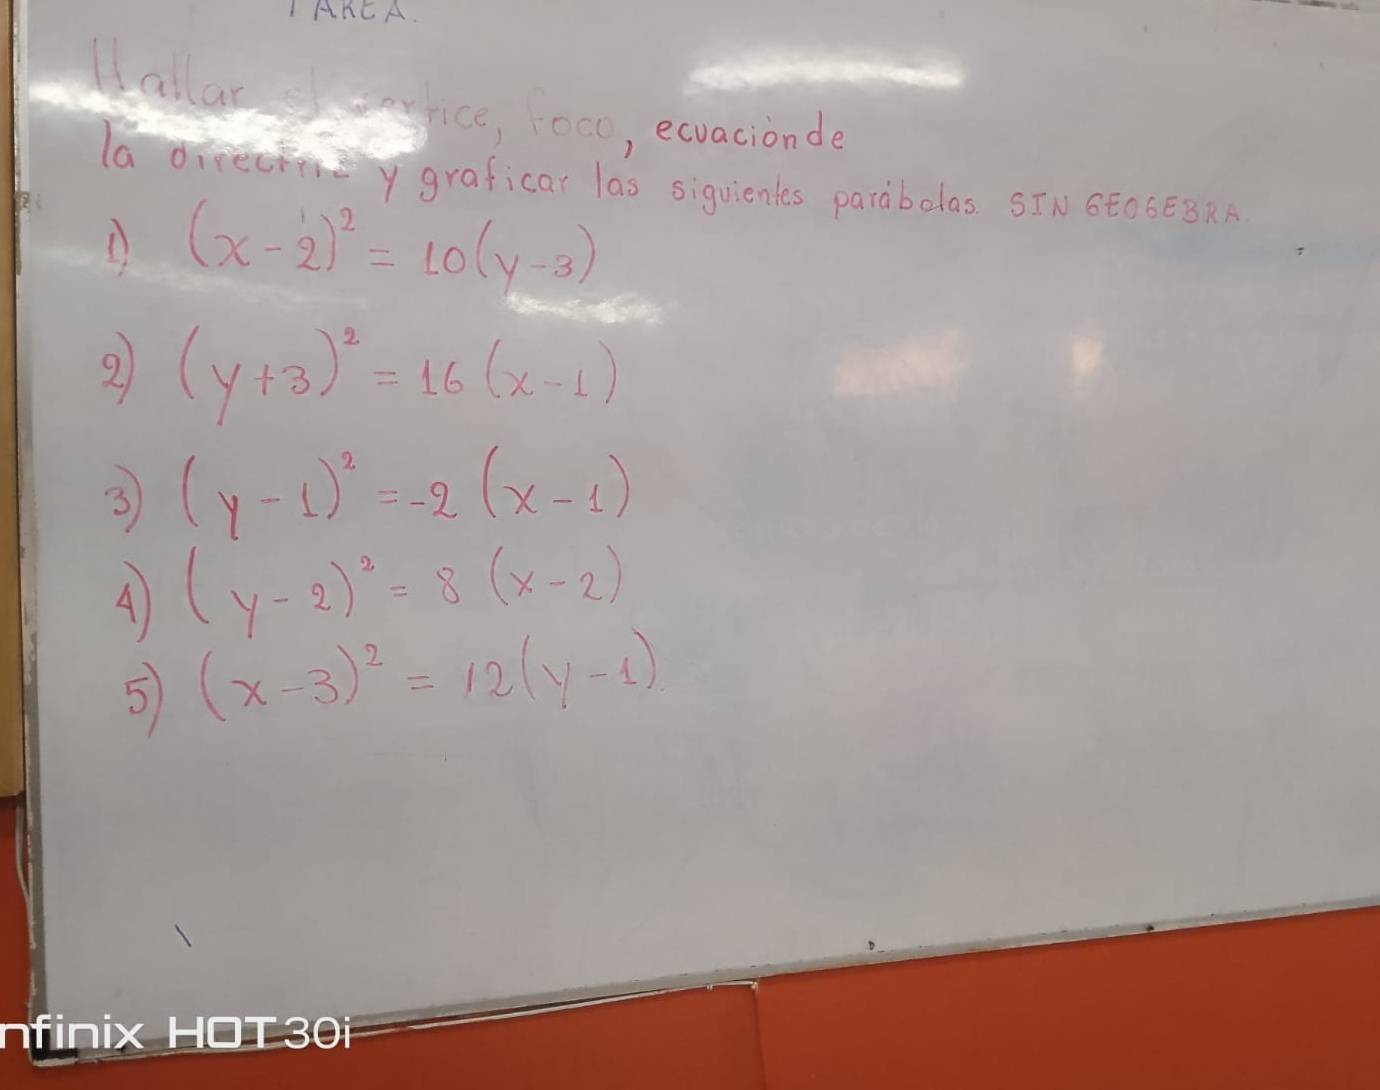 TAREA.
Hallar el vertice, foco, ecuaciónde
la directriz y graficar las siguientes parábolas. SIN GEOGEBRA.
1) (x-2)² = 10(y-3)
2) (y+3)² = 16(x-1)
3) (y-1)² = -2(x-1)
4) (y-2)² = 8(x-2)
5) (x-3)² = 12(y-1).
nfinix HOT 30i